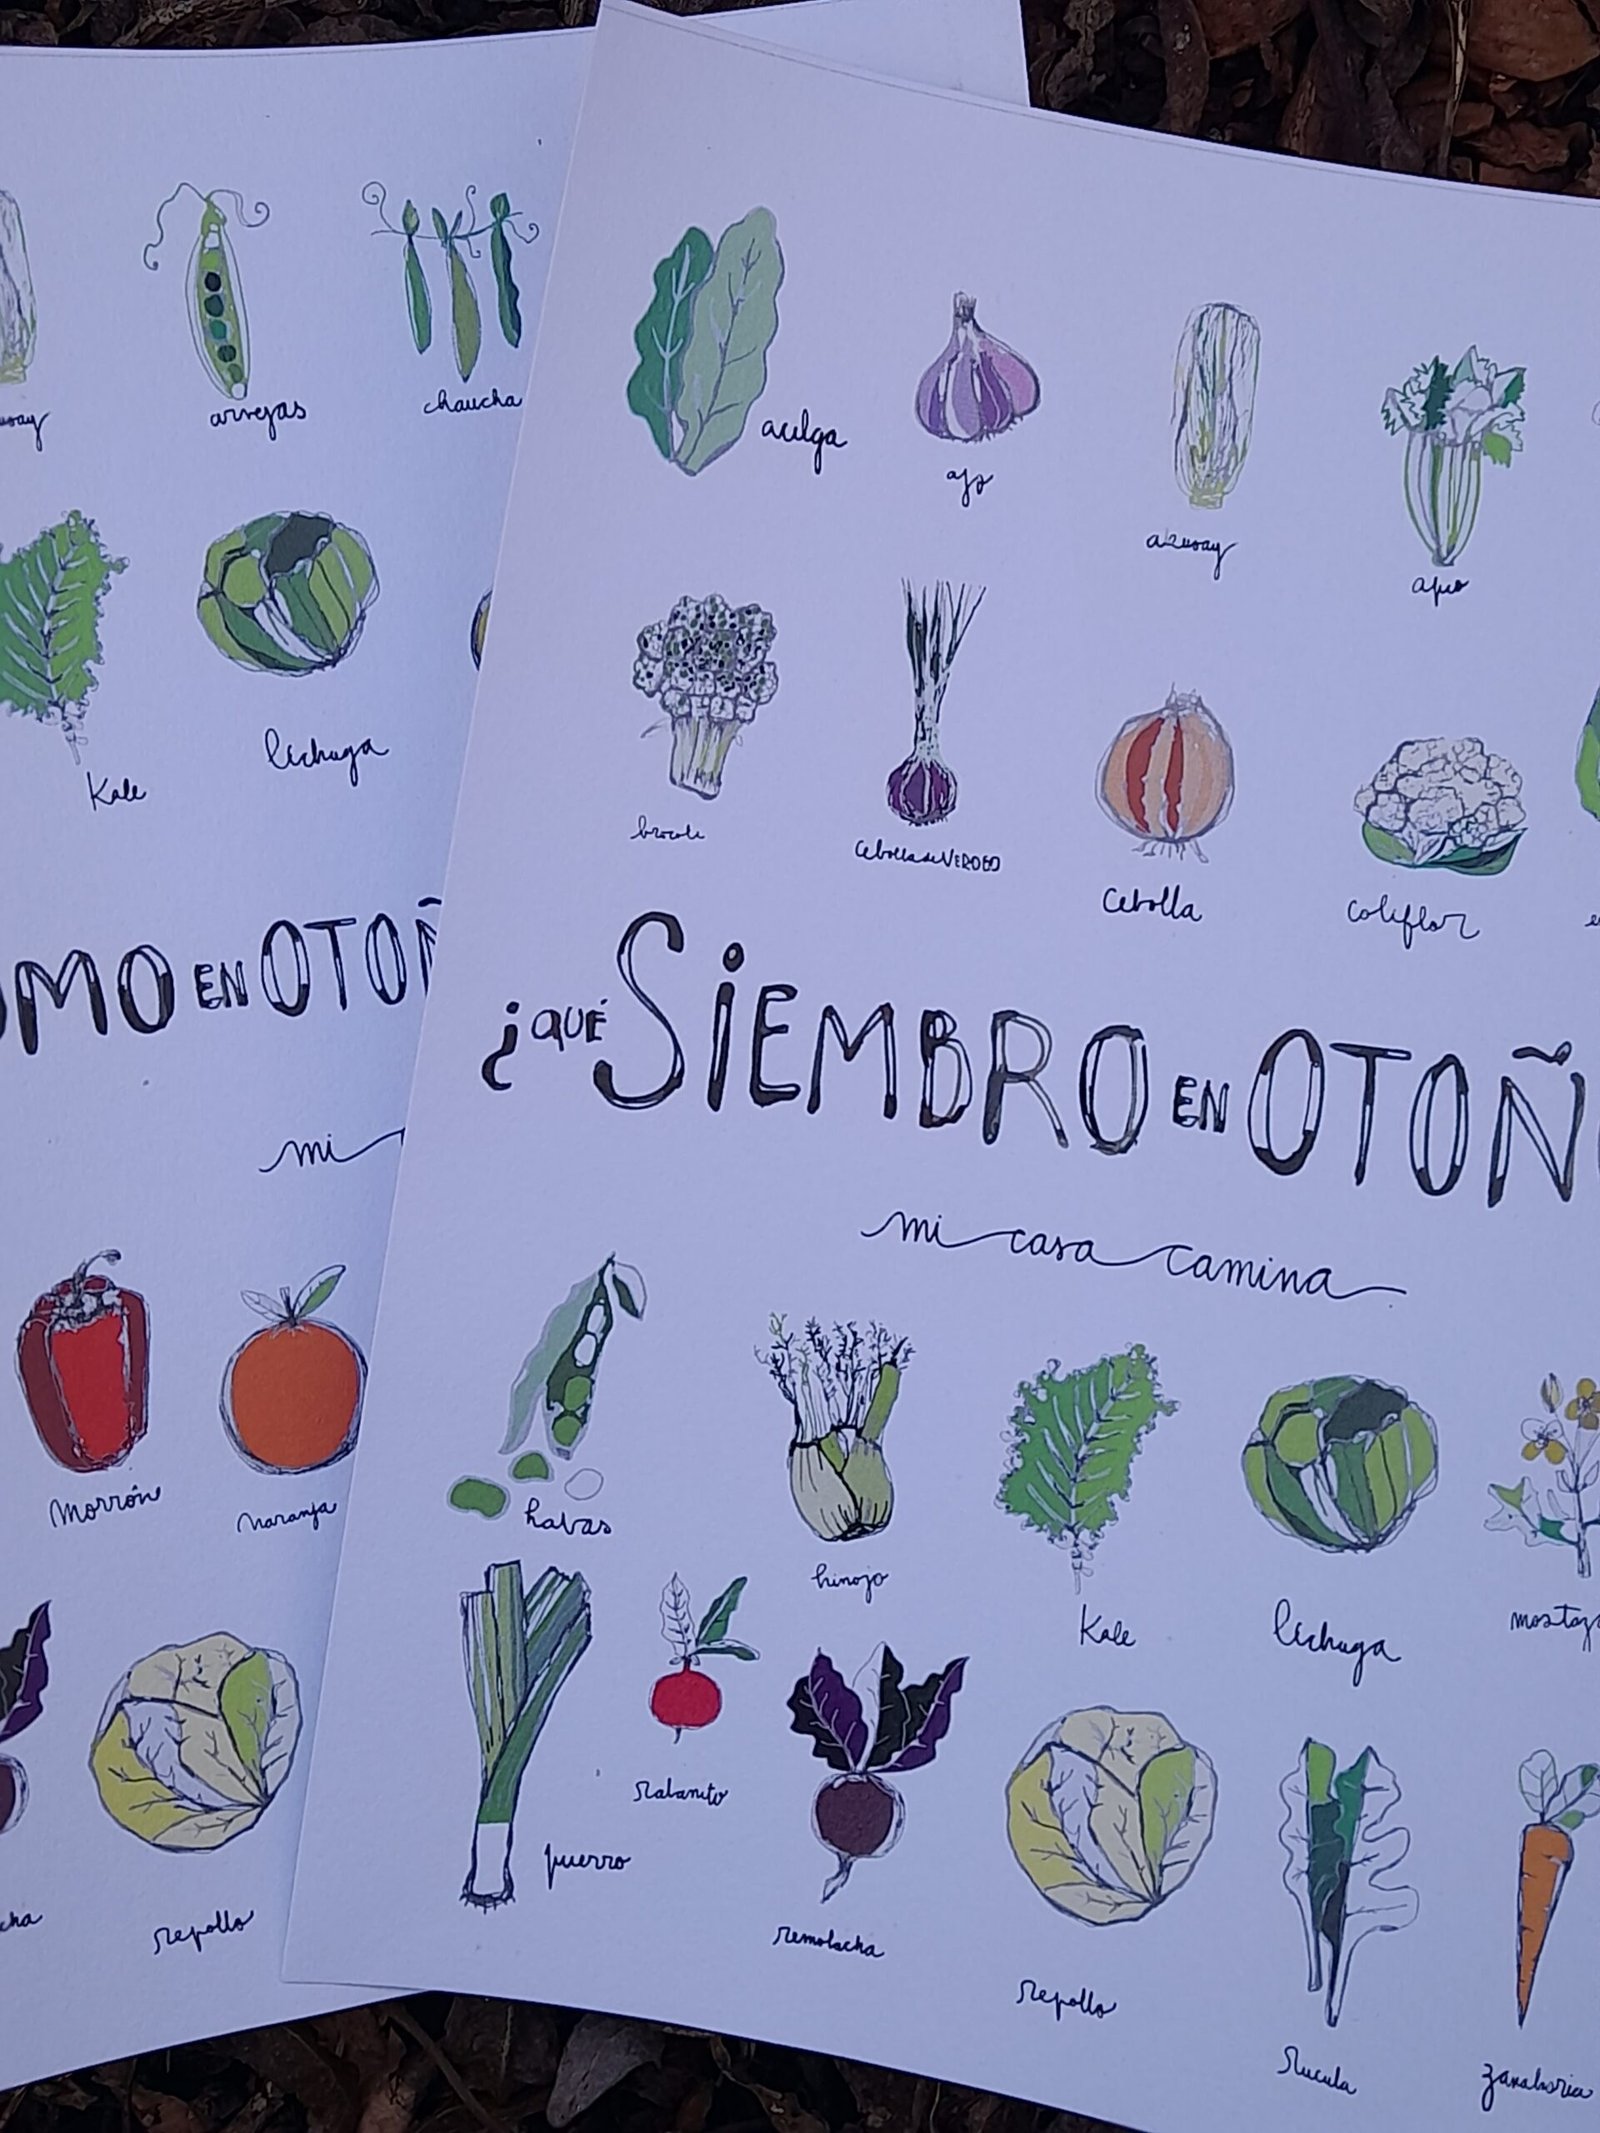 arvejas
chaucha
Kale
lechuga
OMO EN OTOÑ
mi
morrón
naranja
cha
repollo
aculga
ajo
akusay
apio
brocoli
Cebolla de VERDEO
Cebolla
coliflor
¿QUÉ SIEMBRO EN OTOÑ
mi casa camina
habas
hinojo
Kale
lechuga
mostaz
puerro
Rabanito
Remolacha
Repollo
Rucula
zanahoria